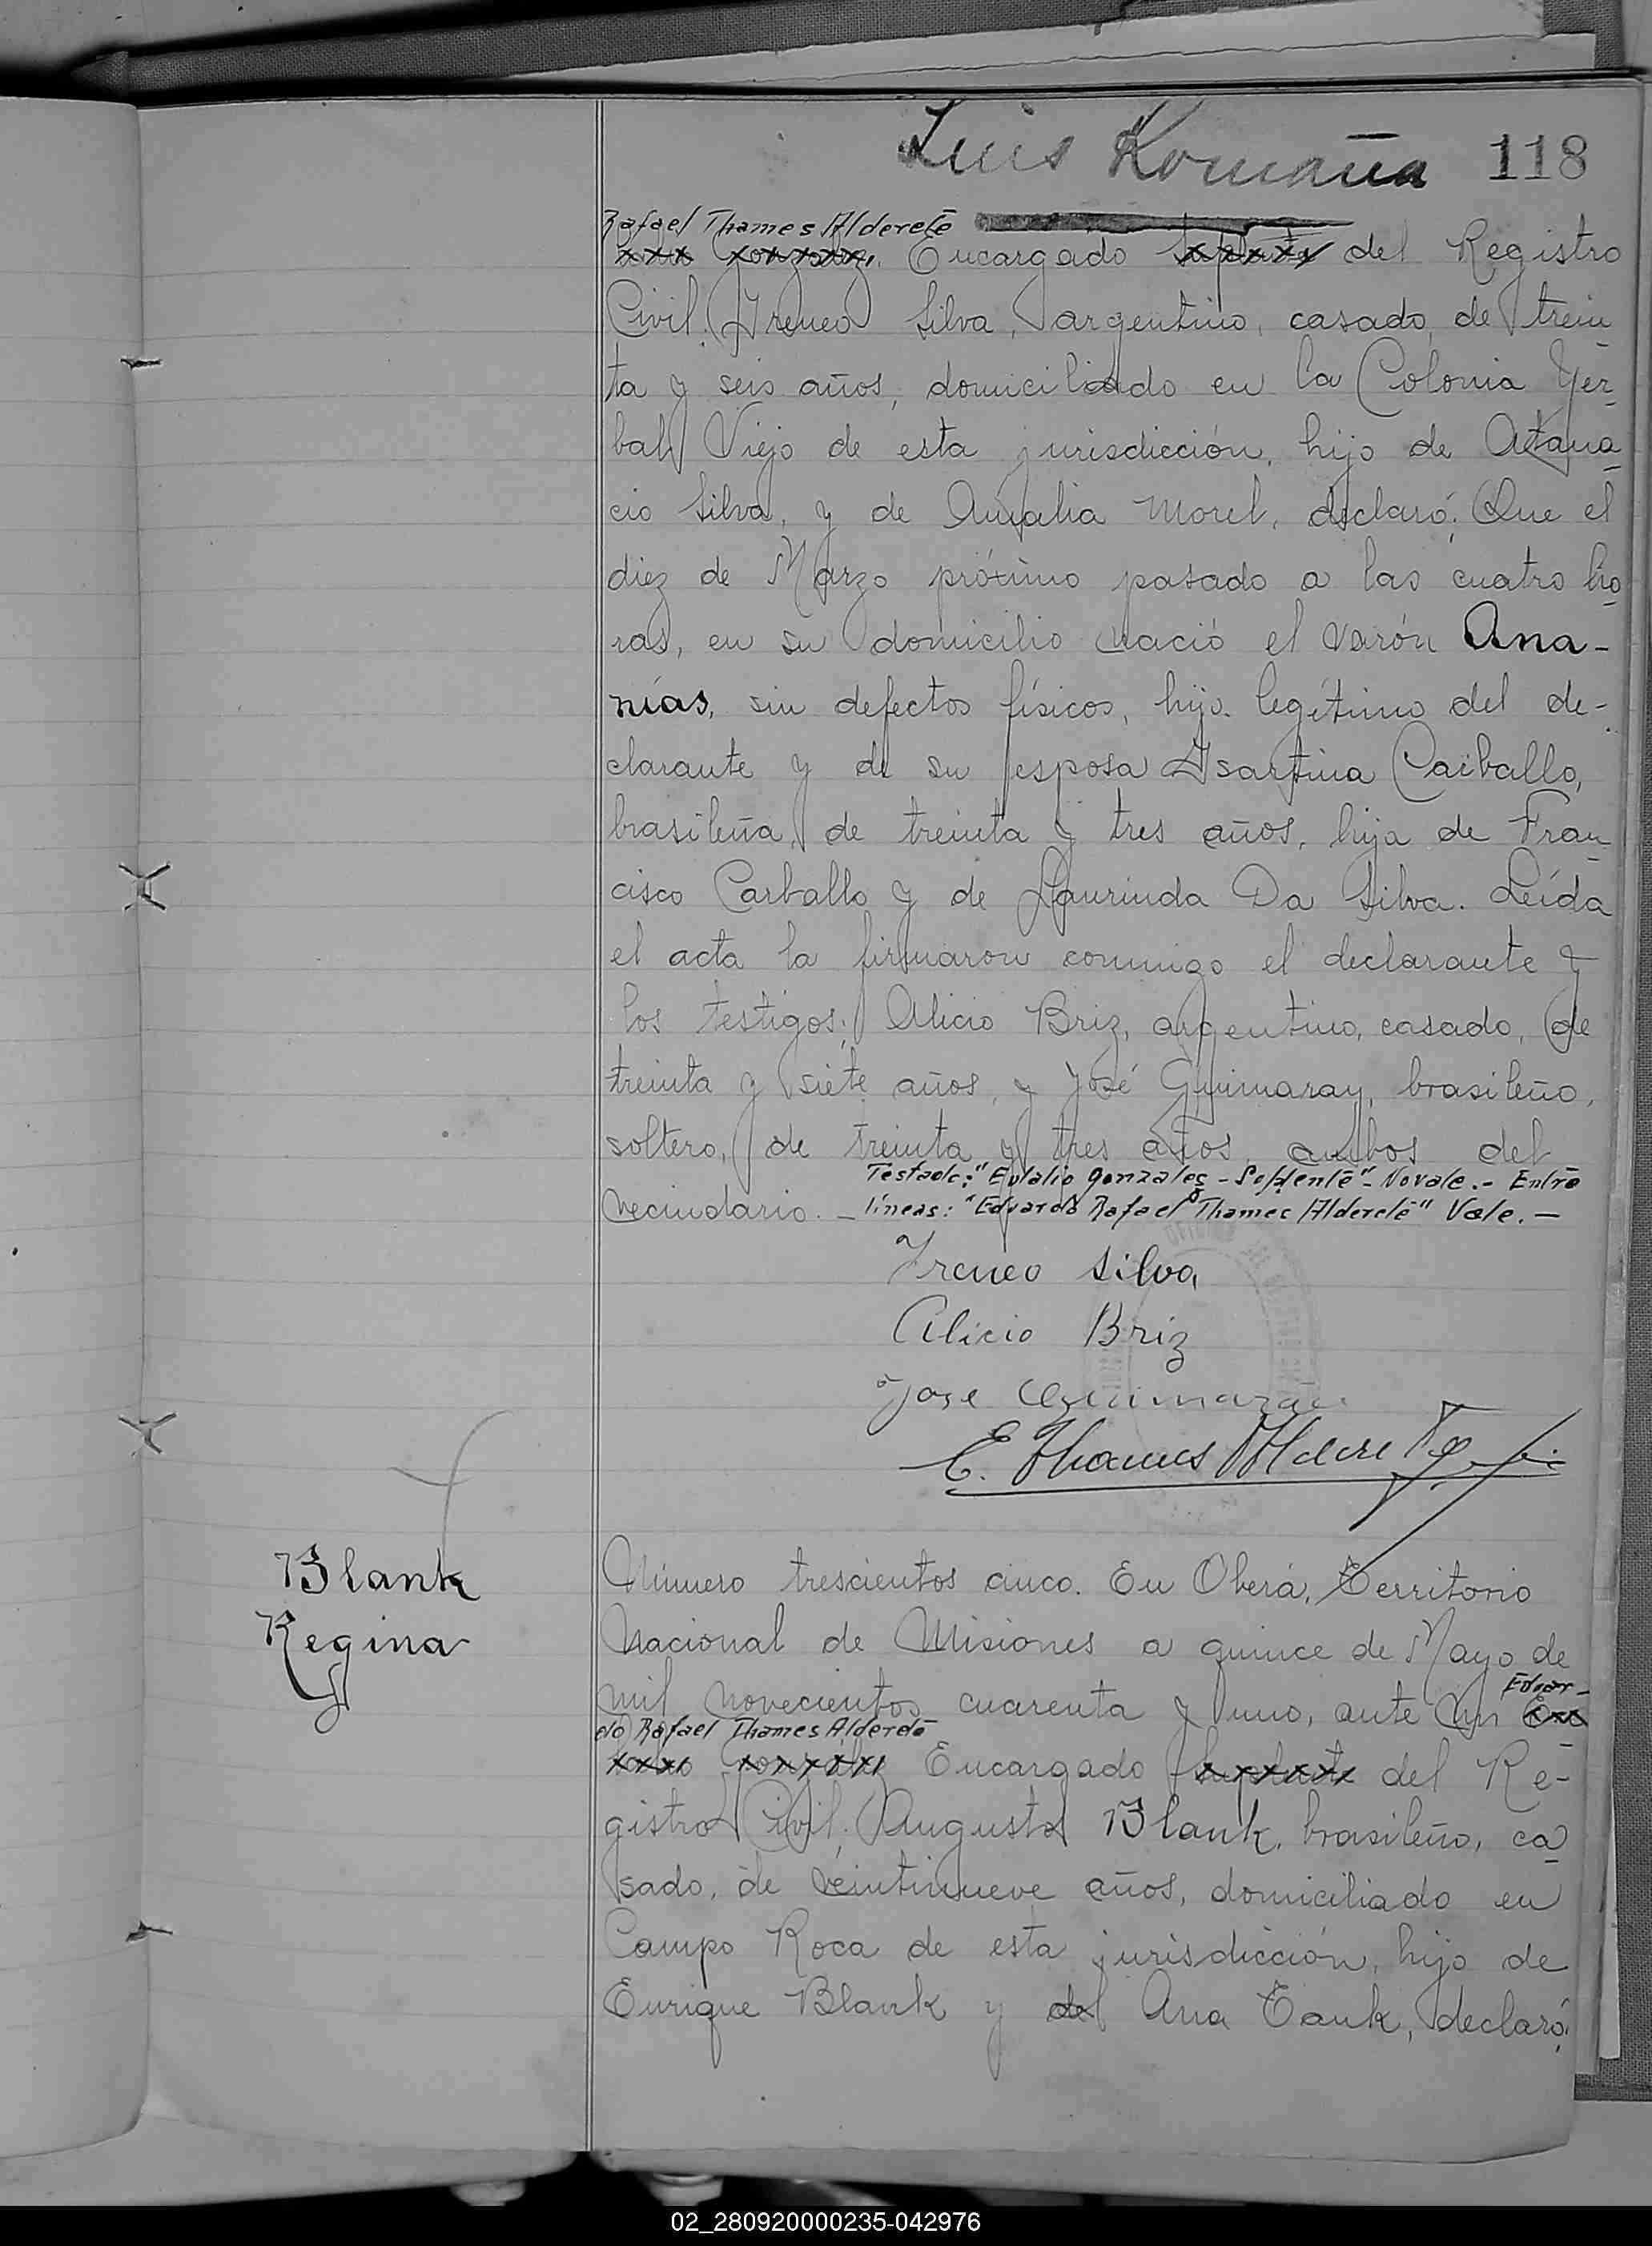 Luis Romaña 118
Rafael Thames Alderete
Encargado del Registro
Civil. Ireneo Silva, argentino, casado, de trein
ta y seis años, domiciliado en la Colonia Yer-
bal Viejo de esta jurisdicción, hijo de Atana-
cio Silva, y de Amalia Morel, declaró: Que el
diez de Marzo próximo pasado a las cuatro ho-
ras, en su domicilio nació el varón Ana-
nías, sin defectos físicos, hijo legítimo del de-
clarante y de su esposa Isartina Carballo,
brasileña, de treinta y tres años, hija de Fran-
cisco Carballo y de Laurinda Da Silva. Leída
el acta la firmaron conmigo el declarante y
los testigos: Alicio Briz, argentino, casado, de
treinta y siete años, y José Guimaray, brasileño,
soltero, de treinta y tres años, ambos del
Testado: "Eulalio Gonzales - Suplente" - No vale. - Entre
vecindario. - líneas: "Eduardo Rafael Thames Alderete" Vale. -
Ireneo Silva
Alicio Briz
Jose
E. Thames Alderete
Blank
Regina
Número trescientos cinco. En Oberá, Territorio
Nacional de Misiones a quince de Mayo de
Eduar-
mil novecientos cuarenta y uno, ante mí
do Rafael Thames Alderete
Encargado del Re-
gistro Civil. Augusto Blank, brasileño, ca-
sado, de veintinueve años, domiciliado en
Campo Roca de esta jurisdicción, hijo de
Enrique Blank y de Ana Tank, declaró:
02_280920000235-042976